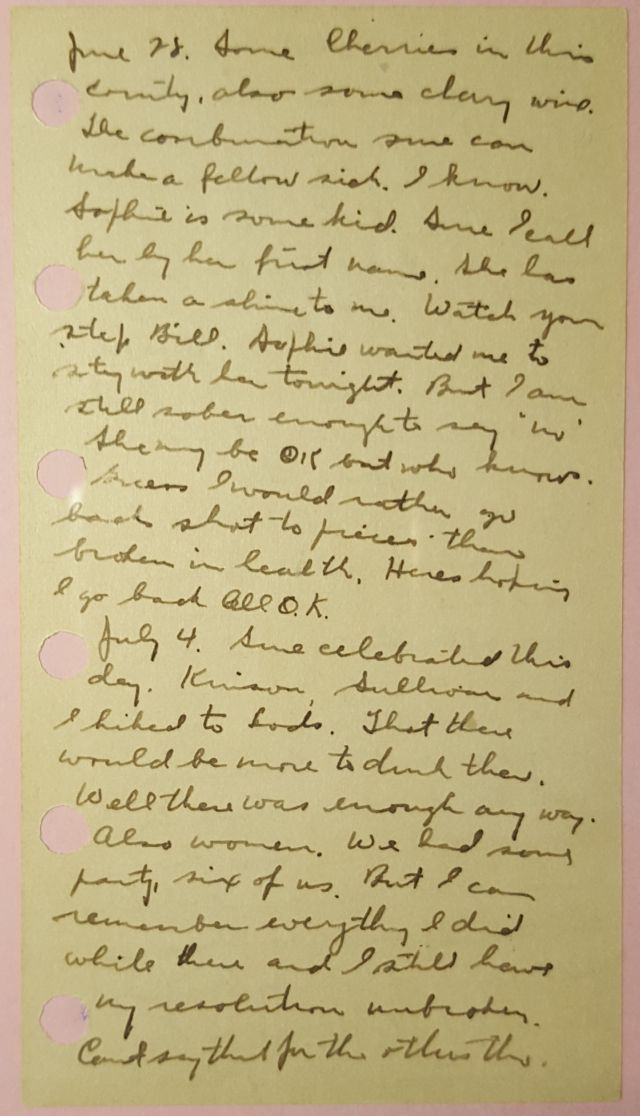 June 28. Some Cherries in this
county, also some cherry wine.
The combination sure can
make a fellow sick. I know.
Sophie is some kid. Sure I call
her by her first name. She has
taken a shine to me. Watch your
step Bill. Sophie wanted me to
stay with her tonight. But I am
still sober enough to say "no"
She may be OK but who knows.
Guess I would rather go
back shot to pieces than
broken in health. Heres hoping
I go back All O.K.
July 4. Sure celebrated this
day. Kinison, Sullivan and
I hiked to Sods. That there
would be more to drink there.
Well there was enough any way.
Also women. We had some
party, six of us. But I can
remember everything I did
while there and I still have
my resolution unbroken.
Cant say that for the others tho.